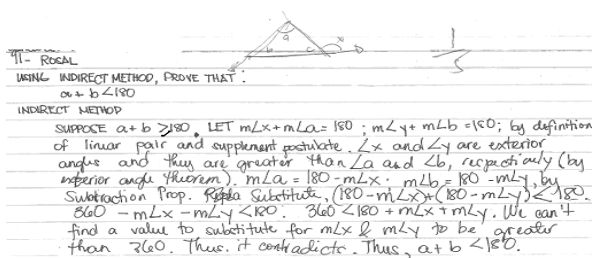 a x
b c D
1
5
91- ROSAL
USING INDIRECT METHOD, PROVE THAT :
a + b < 180
INDIRECT METHOD
SUPPOSE a + b ≥ 180. LET m∠x + m∠a = 180 ; m∠y + m∠b = 180; by definition
of linear pair and supplement postulate. ∠x and ∠y are exterior
angles and they are greater than ∠a and ∠b, respectively (by
exterior angle theorem). m∠a = 180 - m∠x . m∠b = 180 - m∠y, by
Subtraction Prop. Substitute, (180 - m∠x)+(180 - m∠y) < 180.
360 - m∠x - m∠y < 180. 360 < 180 + m∠x + m∠y. We can't
find a value to substitute for m∠x & m∠y to be greater
than 360. Thus. it contradicts. Thus, a + b < 180.